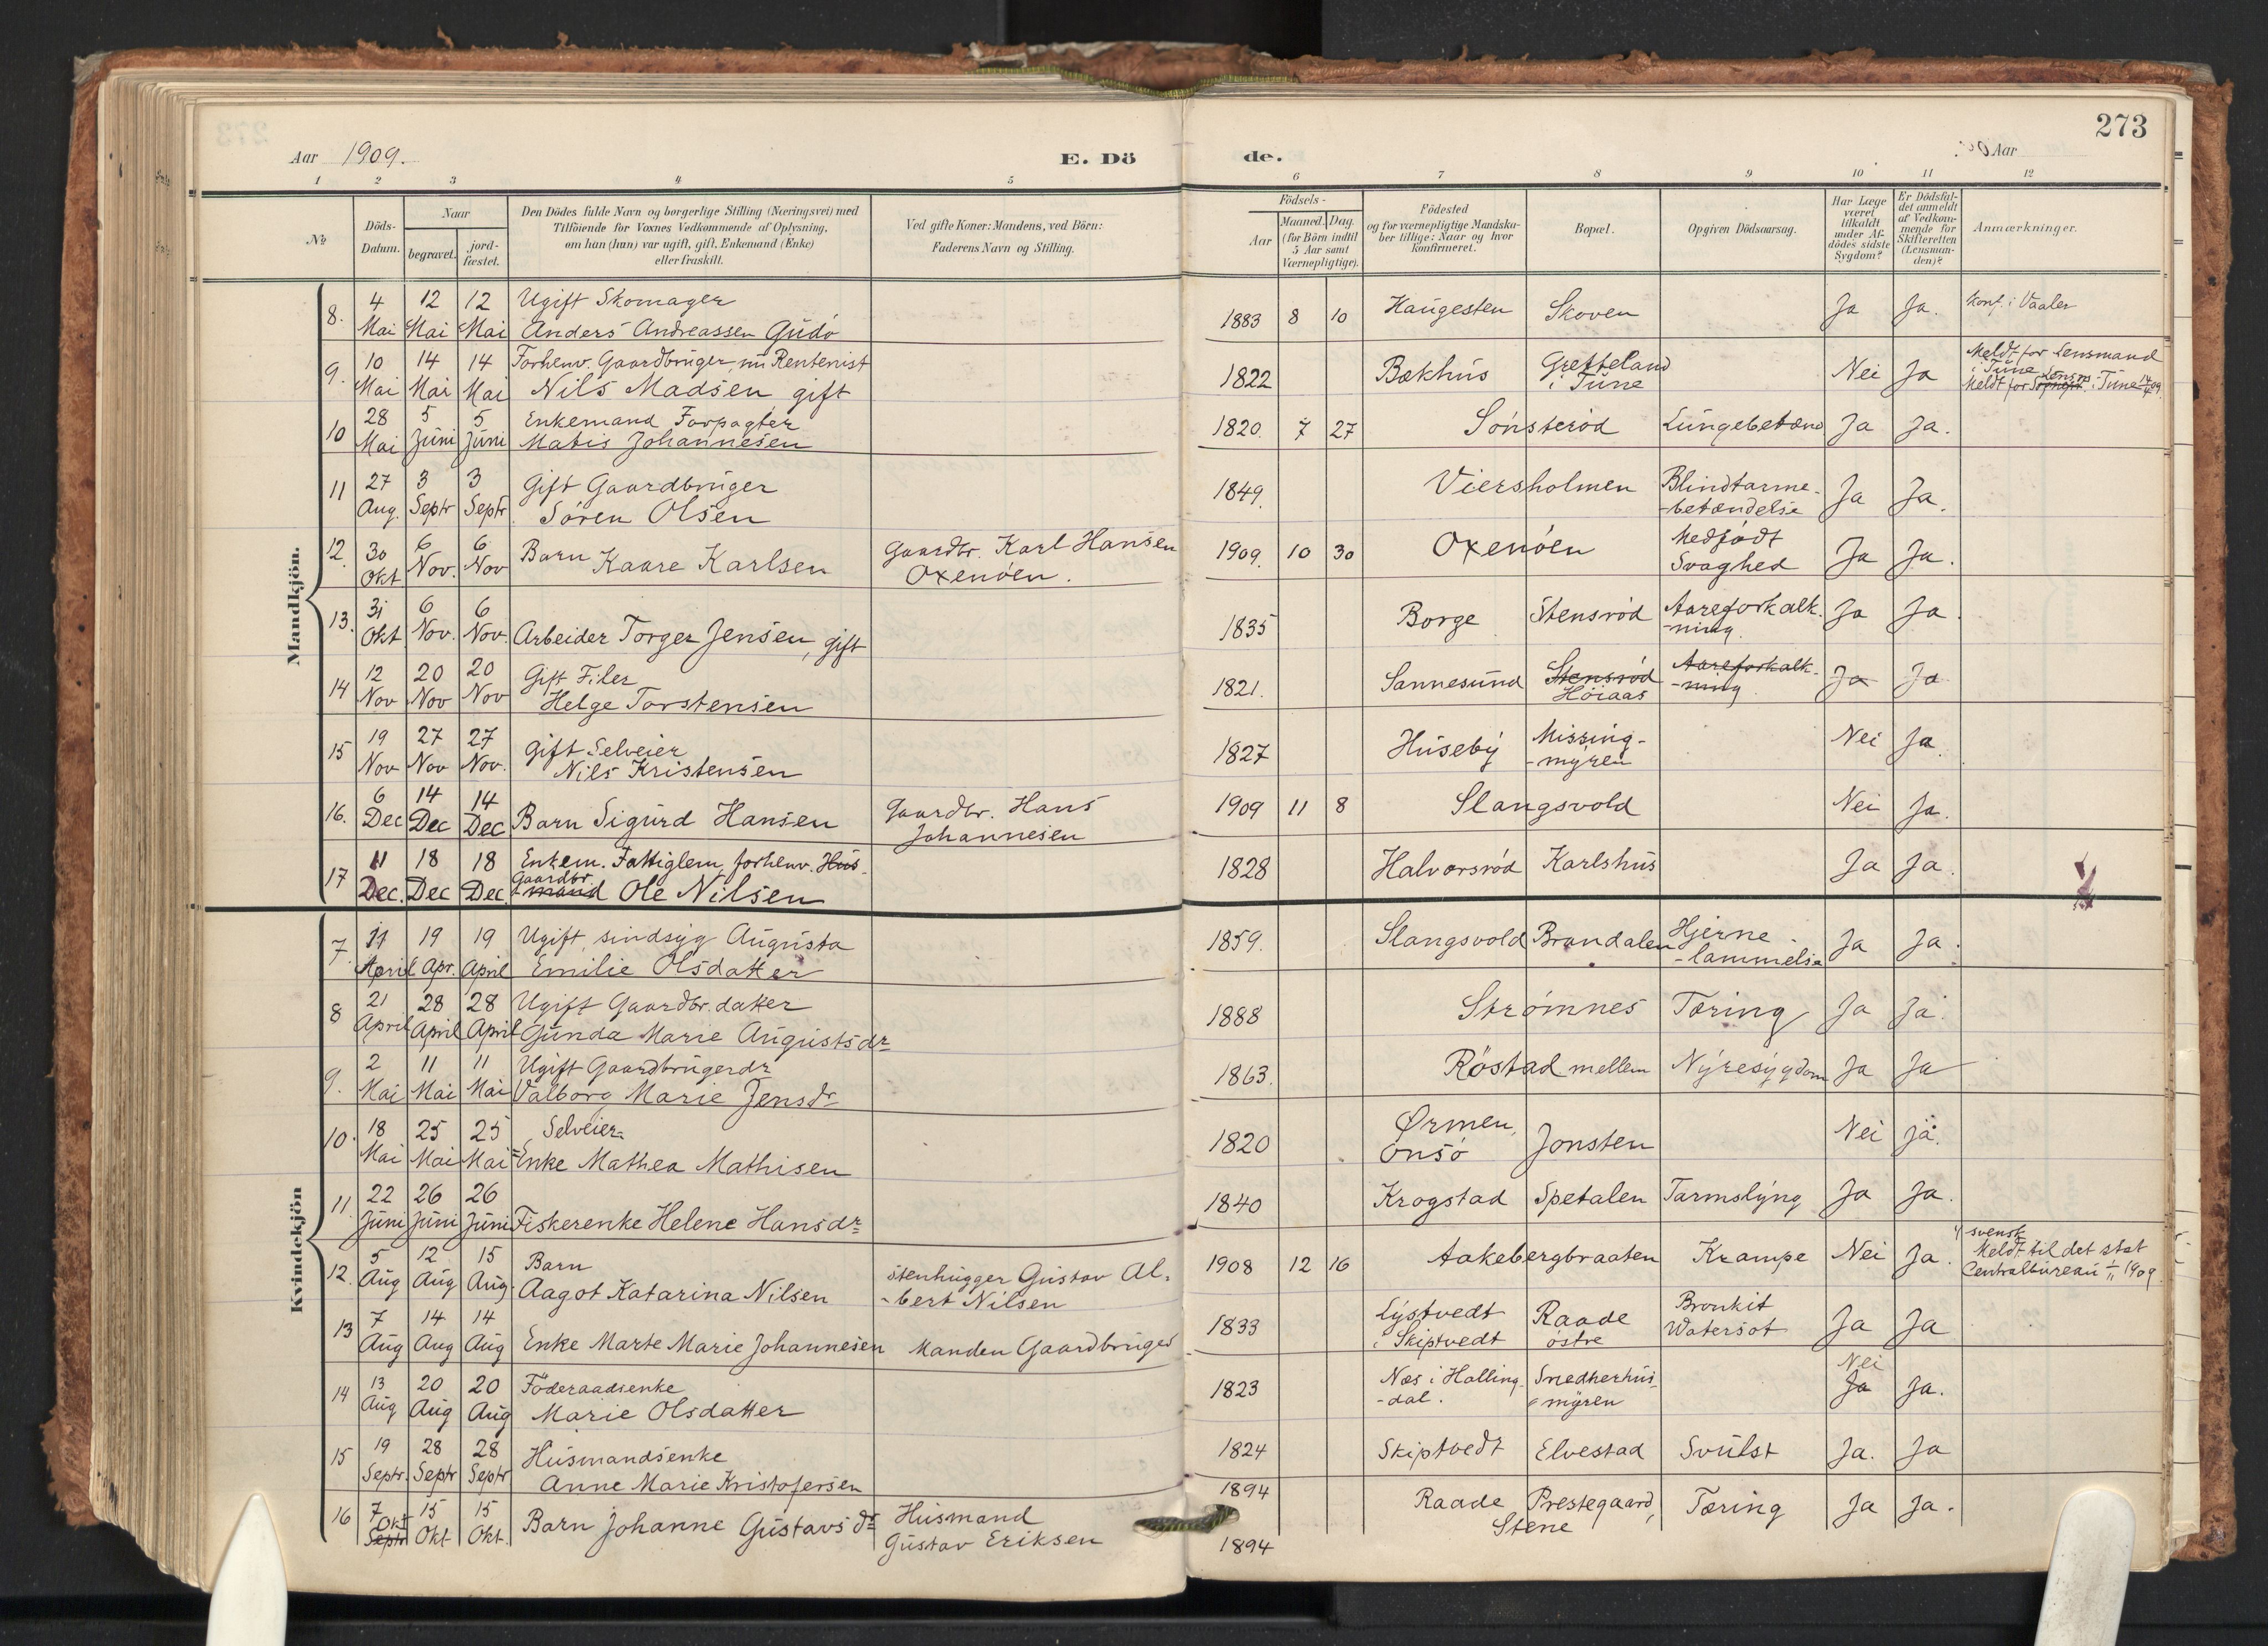 273
Aar 1909.
E. Döde.
Aar
1 2 3 4 5 6 7 8 9 10 11 12
№
Döds-Datum.
Naar
begravet.
jord-fæstet.
Den Dödes fulde Navn og borgerlige Stilling (Næringsvei) med
Tilföiende for Voxnes Vedkommende af Oplysning,
om han (hun) var ugift, gift, Enkemand (Enke)
eller fraskilt.
Ved gifte Koner: Mandens, ved Börn:
Faderens Navn og Stilling.
Födsels-
Aar
Maaned. Dag.
(for Börn indtil
5 Aar samt
Værnepligtige).
Födested
og for værnepligtige Mandska-
ber tillige: Naar og hvor
konfirmeret.
Bopæl.
Opgiven Dödsaarsag.
Har Læge
været
tilkaldt
under Af-
dödes sidste
Sygdom?
Er Dödsfal-
det anmeldt
af Vedkom-
mende for
Skifteretten
(Lensman-
den)?
Anmærkninger.
Mandkjön.
8. 4 Mai 12 Mai 12 Mai Ugift Skomager
Anders Andreassen Gudö 1883 8 10 Haugesten Skoven Ja Ja. Konf. i Vaaler
9. 10 Mai 14 Mai 14 Mai Forhenv. Gaardbruger, nu Rentenist
Nils Madsen gift 1822 Bækhus Grefteland i Tune Nei Ja Meldt for Lensmand
i Tune
Meldt for Lensm. i Tune
10 28 Mai 5 Juni 5 Juni Enkemand Forpagter
Matis Johannesen 1820. 7 27 Sönsteröd Lungebetænd Ja Ja.
11 27 Aug. 3 Septr 3 Septr. Gift Gaardbruger
Sören Olsen 1849. Viersholmen Blindtarme-
-betændelse Ja Ja.
12. 30 Okt 6 Nov. 6 Nov Barn Kaare Karlsen Gaardbr. Karl Hansen
Oxenöen. 1909. 10 30 Oxenöen Medfödt
Svaghed Ja Ja.
13. 31 Okt 6 Nov. 6 Nov. Arbeider Torger Jensen, gift 1835 Borge Stensröd Aareforkalk-
-ning. Ja Ja.
14 12 Nov 20 Nov 20 Nov Gift Filer
Helge Torstensen 1821. Sannesund Stensröd
Höiaas Aareforkalk-
-ning Ja Ja
15 19 Nov 27 Nov 27 Nov. Gift Selveier
Nils Kristensen 1827 Huseby Missing-
-myren Nei Ja
16. 6 Dec 14 Dec 14 Dec Barn Sigurd Hansen Gaardbr. Hans
Johannesen 1909 11 8 Slangsvold Nei Ja.
17 11 Dec. 18 Dec 18 Dec. Enkem. Fattiglem, forhenv. Hus-
Gaardbr.
-mand Ole Nilsen 1828 Halvorsröd Karlshus Ja Ja.
Kvindekjön
7. 11 April 19 Apr. 19 April Ugift, sindsyg Augusta
Emilie Olsdatter 1859. Slangsvold Brandalen Hjerne-
-lammelse Ja Ja.
8 21 April 28 April 28 April Ugift Gaardbr.datter
Gunda Marie Augustsdr 1888 Strömnes Tæring Ja Ja.
9. 2 Mai 11 Mai 11 Mai Ugift Gaardbrugerdr
Valborg Marie Jensdr 1863. Röstad mellem Nyresygdom Ja Ja
10. 18 Mai 25 Mai 25 Mai Selveier-
-Enke Mathea Mathisen 1820 Ørmen,
Onsö Jonsten Nei Ja.
11. 22 Juni 26 Juni 26 Juni Fiskerenke Helene Hansdr 1840 Krogstad Spetalen Tarmslyng Ja Ja.
12. 5 Aug 12 Aug 15 Aug. Barn
Aagot Katarina Nilsen Stenhugger Gustav Al-
-bert Nilsen 1908 12 16 Aakebergbraaten Krampe Nei Ja. svensk
Meldt til det stat
Centralbureau 1/11 1909
13 7 Aug 14 Aug 14 Aug Enke Marte Marie Johannesen Manden Gaardbruger 1833 Lystvedt
i Skiptvedt Raade
östre Bronkit
Watersot Ja Ja
14 13 Aug 20 Aug 20 Aug Föderaadsenke
Marie Olsdatter 1823 Næs i Halling-
-dal. Snedkerhus-
-myren Nei
Ja Ja.
15 19 Septr. 28 Septr 28 Septr Husmandsenke
Anne Marie Kristofersen 1824 Skiptvedt Elvestad Svulst Ja. Ja
16 7 Okt
Septr 15 Okt 15 Okt. Barn Johanne Gustavsdr Husmand
Gustav Eriksen 1894 Raade Prestegaard,
Stene Tæring Ja Ja.
1894